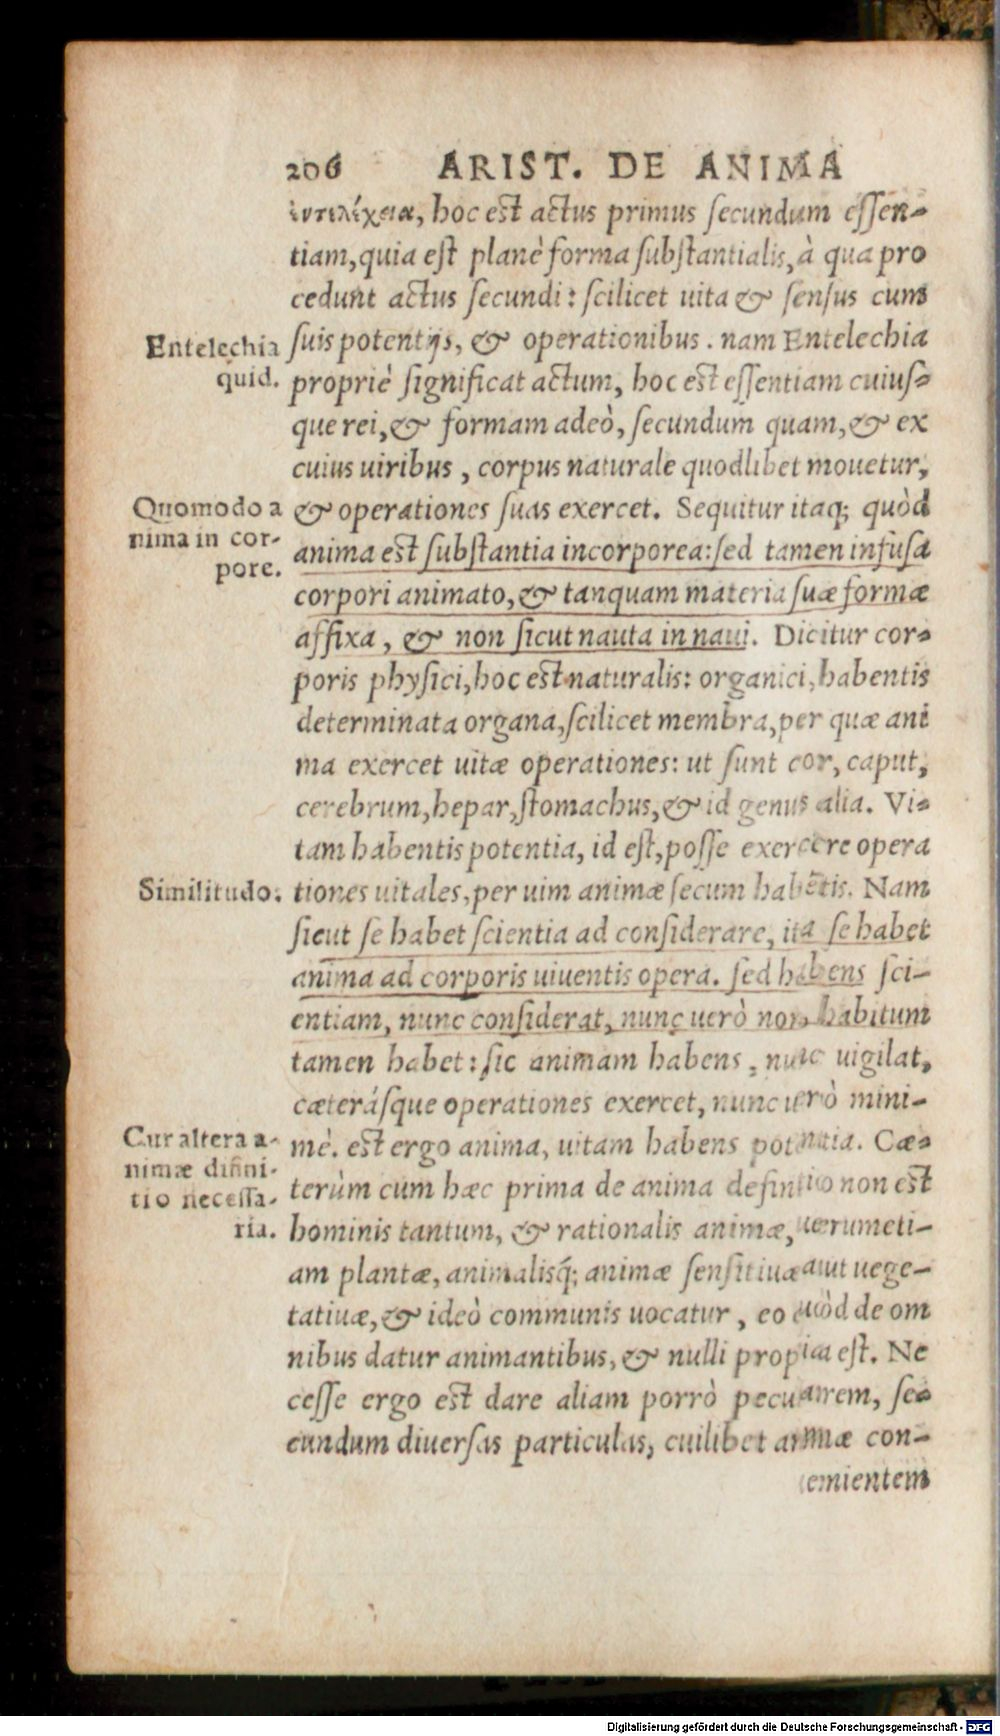 206 ARIST. DE ANIMA
ἐντελέχεια, hoc est actus primus secundum essen-
tiam, quia est planè forma substantialis, à qua pro
cedunt actus secundi: scilicet uita & sensus cum
Entelechia
quid.
suis potentijs, & operationibus. nam Entelechia
propriè significat actum, hoc est essentiam cuius-
que rei, & formam adeò, secundum quam, & ex
cuius uiribus, corpus naturale quodlibet mouetur,
Quomodo a
nima in cor-
pore.
& operationes suas exercet. Sequitur itaq; quòd
anima est substantia incorporea: sed tamen infusa
corpori animato, & tanquam materia suæ formæ
affixa, & non sicut nauta in naui. Dicitur cor-
poris physici, hoc est naturalis: organici, habentis
determinata organa, scilicet membra, per quæ ani
ma exercet uitæ operationes: ut sunt cor, caput,
cerebrum, hepar, stomachus, & id genus alia. Vi-
tam habentis potentia, id est, posse exercere opera
Similitudo.
tiones uitales, per uim animæ secum habẽtis. Nam
sicut se habet scientia ad considerare, ita se habet
anima ad corporis uiuentis opera. sed habens sci-
entiam, nunc considerat, nunc uerò non, habitum
tamen habet: sic animam habens, nunc uigilat,
cæterásque operationes exercet, nunc uerò mini-
Cur altera a-
nimæ diffini-
tio necessa-
ria.
mè. est ergo anima, uitam habens potentia. Cæ-
terùm cum hæc prima de anima definitio non est
hominis tantum, & rationalis animæ, uerumeti-
am plantæ, animalisq́; animæ sensitiuæ aut uege-
tatiuæ, & ideò communis uocatur, eo quòd de om
nibus datur animantibus, & nulli propria est. Ne
cesse ergo est dare aliam porrò peculiarem, se-
cundum diuersas particulas, cuilibet animæ con-
uenientem
Digitalisierung gefördert durch die Deutsche Forschungsgemeinschaft - DFG